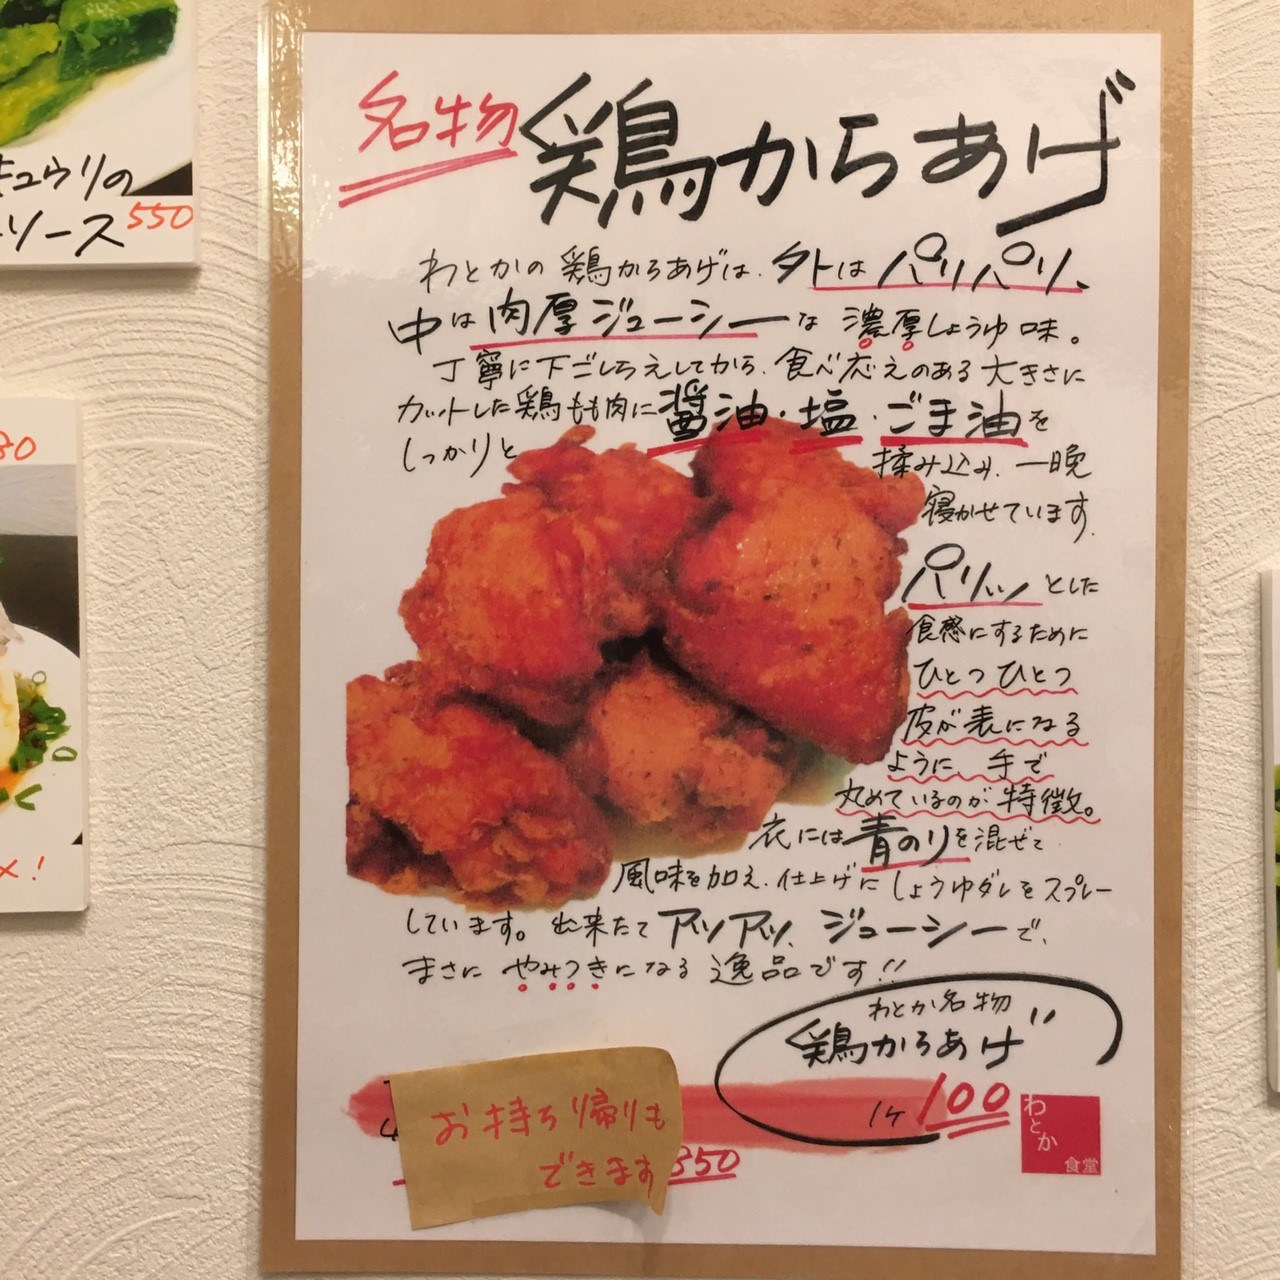 キュウリの
ソース 550
30
名物 鶏からあげ
わとかの鶏からあげは、外はパリパリ、
中は肉厚ジューシーな濃厚しょうゆ味。
丁寧に下ごしらえしてから、食べ応えのある大きさに
カットした鶏もも肉に醤油・塩・ごま油を
しっかりと
揉み込み、一晩
寝かせています。
パリッとした
食感にするために
ひとつひとつ
皮が表になる
ように、手で
丸めているのが特徴。
衣には青のりを混ぜて
風味を加え、仕上げにしょうゆダレをスプレー
しています。出来たてアツアツ、ジューシーで、
まさにやみつきになる逸品です!!
わとか名物
鶏からあげ
1ケ 100
お持ち帰りも
できます
350
わとか
食堂